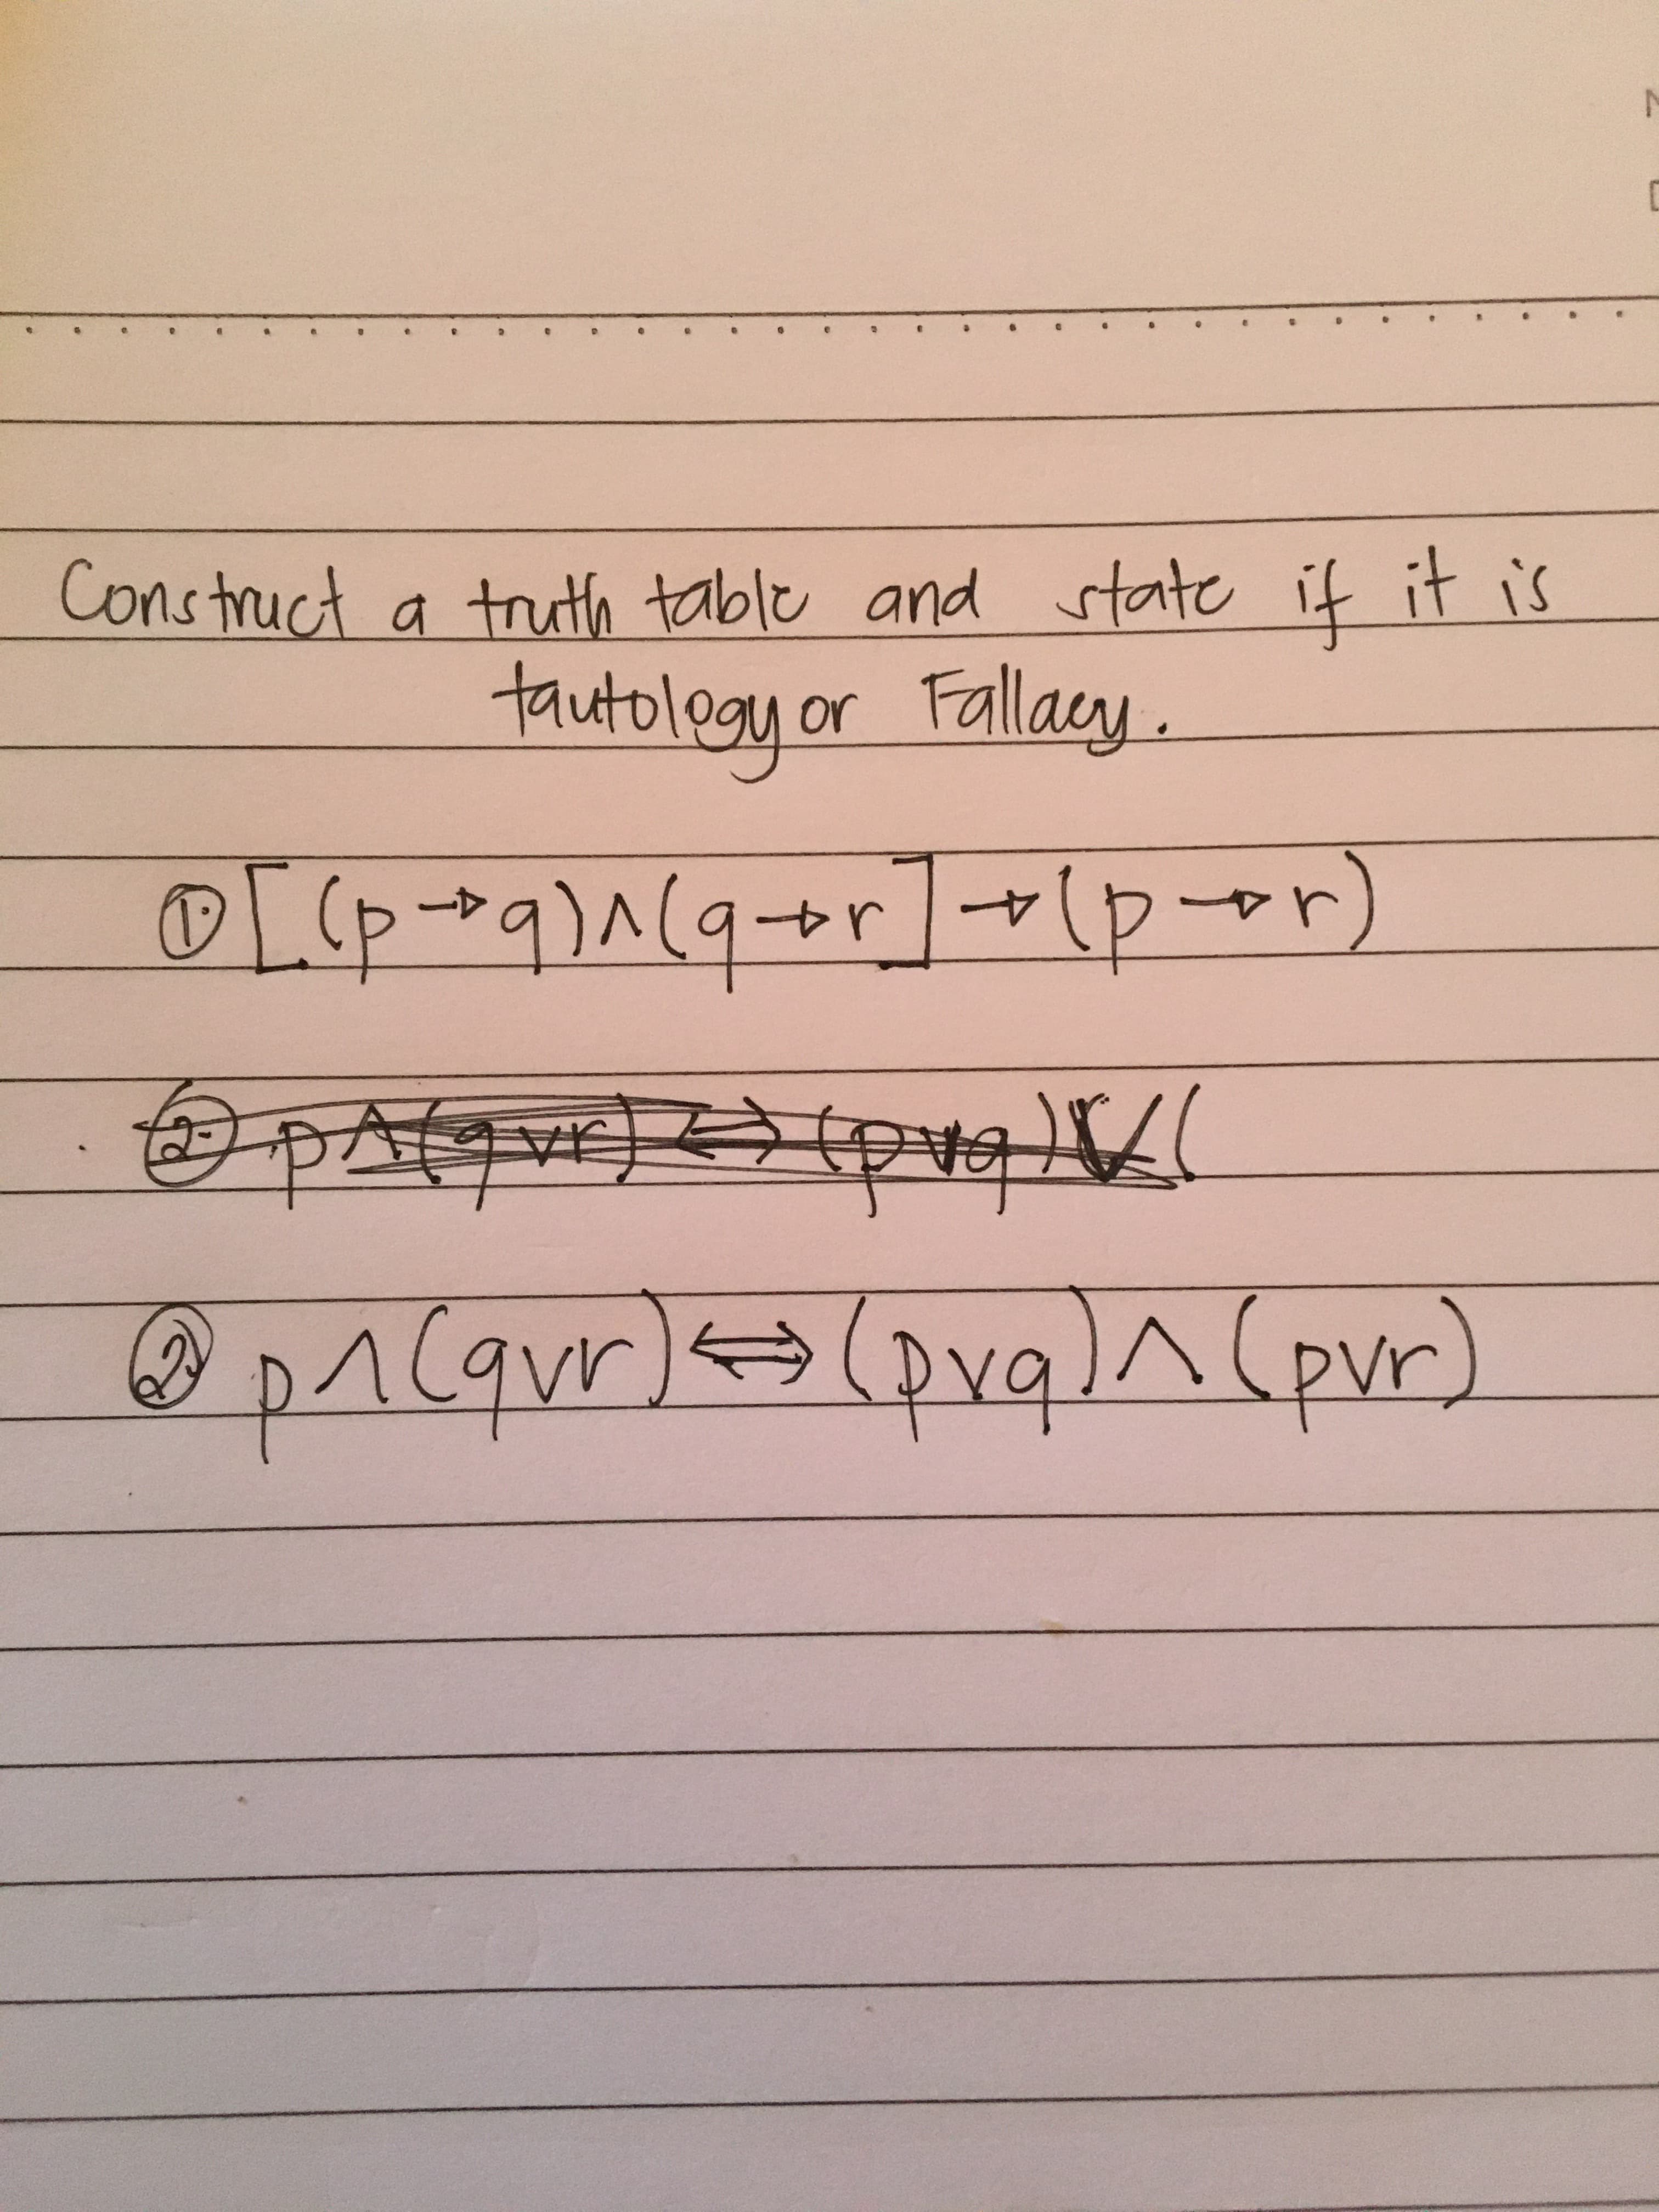 Construct a truth table and state if it is
tautology or Fallacy.
① [(p→q)∧(q→r]→(p→r)
② p∧(q∨r)⟺(p∨q)∨(
② p∧(q∨r)⟺(p∨q)∧(p∨r)